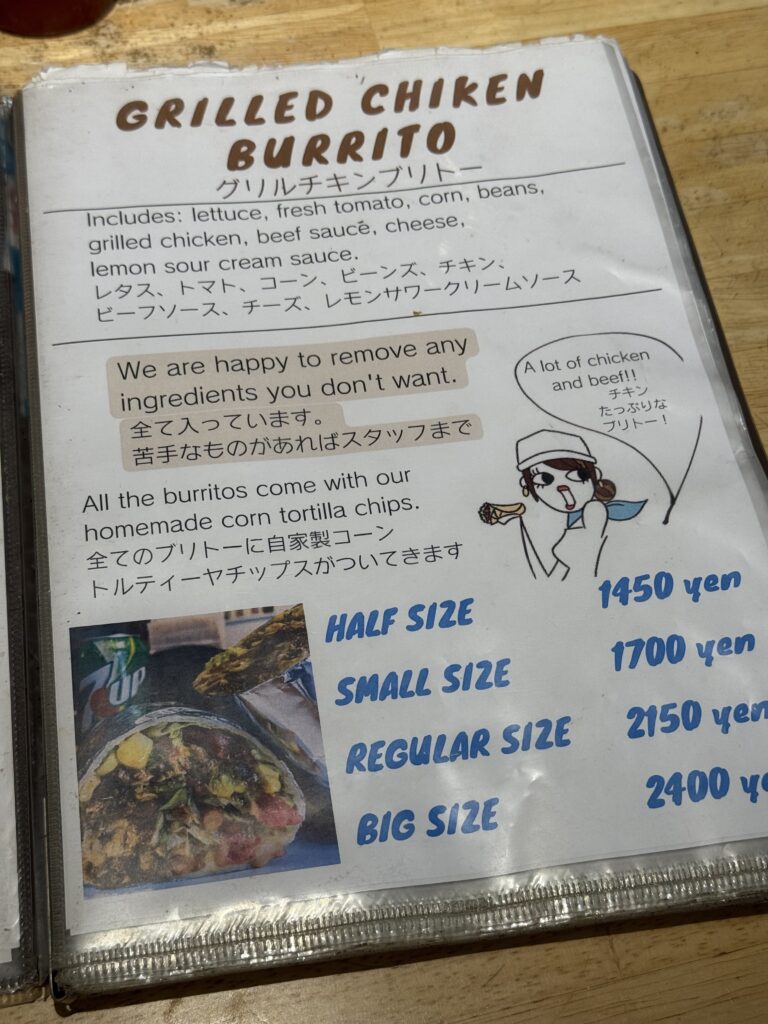 GRILLED CHIKEN
BURRITO
グリルチキンブリトー
Includes: lettuce, fresh tomato, corn, beans,
grilled chicken, beef sauce, cheese,
lemon sour cream sauce.
レタス、トマト、コーン、ビーンズ、チキン、
ビーフソース、チーズ、レモンサワークリームソース
We are happy to remove any
ingredients you don't want.
全て入っています。
苦手なものがあればスタッフまで
A lot of chicken
and beef!!
チキン
たっぷりな
ブリトー！
All the burritos come with our
homemade corn tortilla chips.
全てのブリトーに自家製コーン
トルティーヤチップスがついてきます
7UP
HALF SIZE 1450 yen
SMALL SIZE 1700 yen
REGULAR SIZE 2150 yen
BIG SIZE 2400 ye